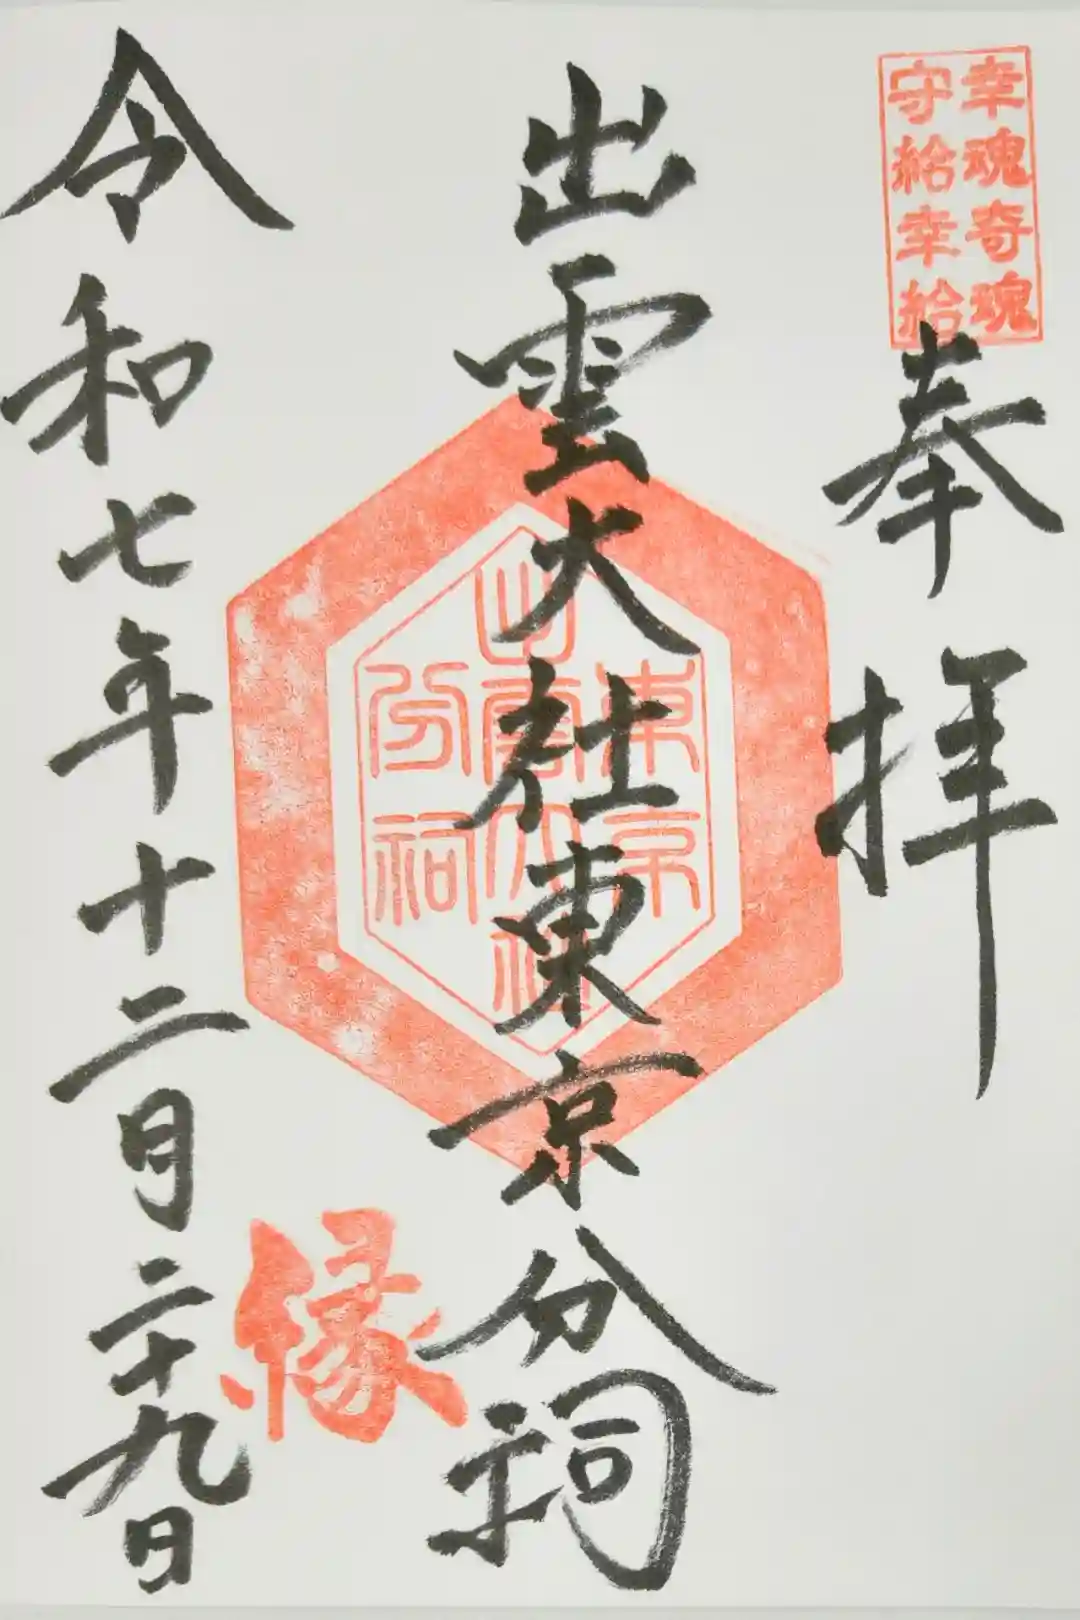 幸魂奇魂
守給幸給
奉拝
出雲大社東京分祠
東京
出雲大社
分祠
縁
令和七年十二月二十九日